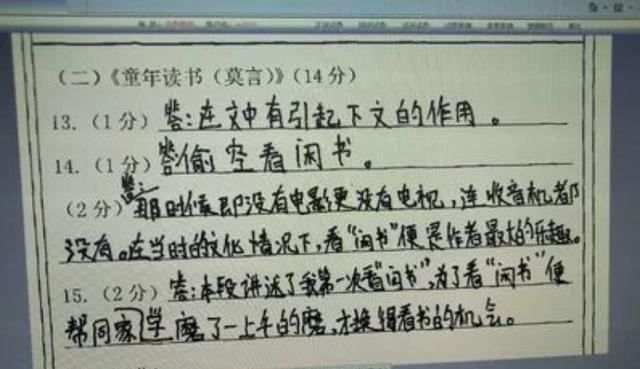 （二）《童年读书（莫言）》（14分）
13.（1分）答:在文中有引起下文的作用。
14.（1分）答:偷空看闲书。
（2分）答:那时候即没有电影更没有电视,连收音机都
没有。在当时的文化情况下,看“闲书”便是作者最大的乐趣。
15.（2分）答:本段讲述了我第一次看“闲书”,为了看“闲书”便
帮同家学磨了一上午的磨,才换得看书的机会。